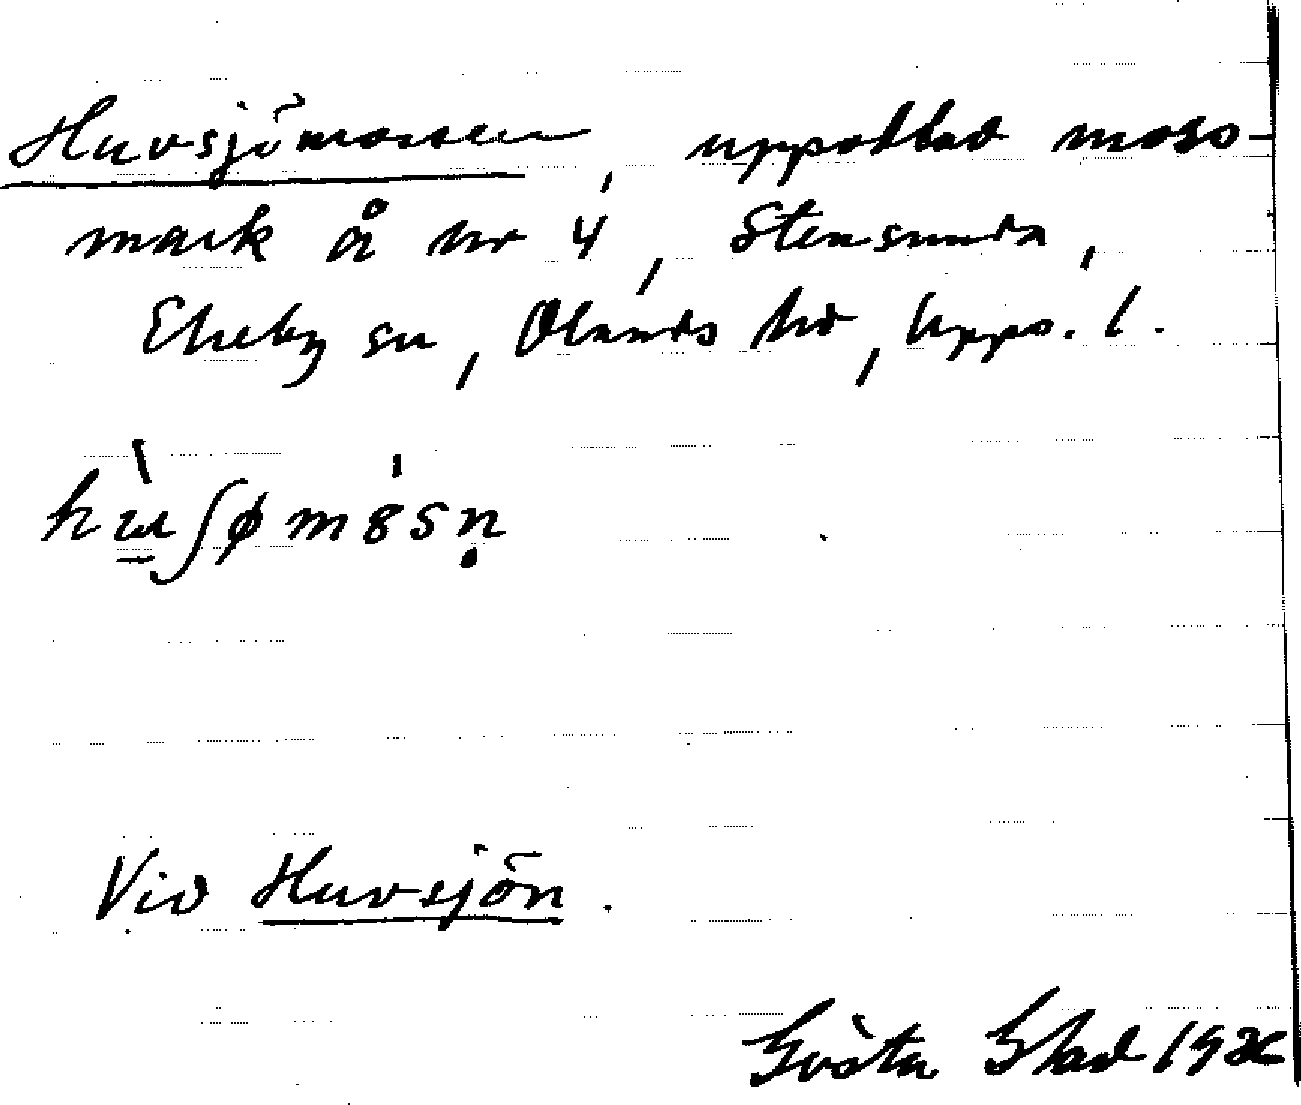 Huvsjömossen, uppodlad moss-
mark å nr 4, Stensunda,
Ekeby sn, Olands hd, Upps. l.
hùʃømȣsṇ
Vid Huvsjön.
Gösta Glad